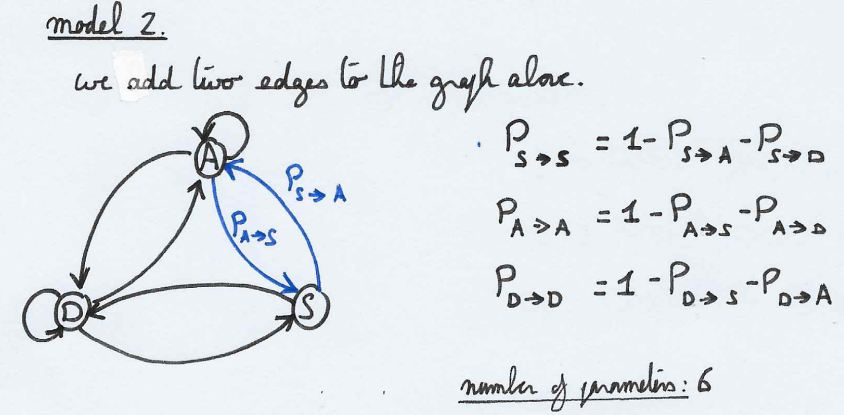 model 2.
we add two edges to the graph above.
A
P S→A
P A→S
D
S
P S→S = 1 - P S→A - P S→D
P A→A = 1 - P A→S - P A→D
P D→D = 1 - P D→S - P D→A
number of parameters: 6